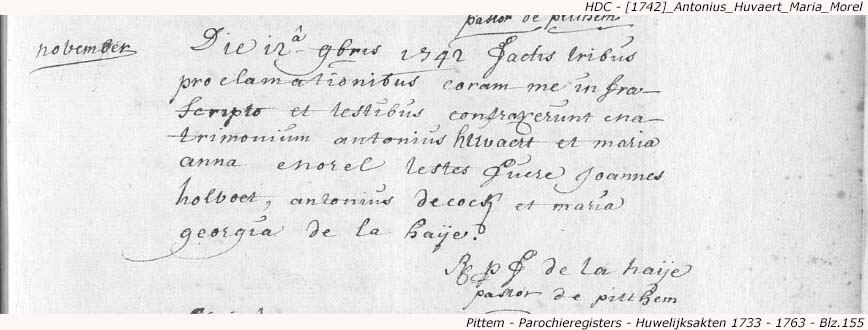 HDC - [1742]_Antonius_Huvaert_Maria_Morel
pastor de pitthem
november
Die 12.ª 9bris 1742 factis tribus
proclamationibus coram me infra-
scripto et testibus contraxerunt ma-
trimonium antonius huvaert et maria
anna morel testes fuere Joannes
holvoet, antonius decock et maria
georgia de la haÿe.
de la haÿe
pastor de pitthem
Pittem - Parochieregisters - Huwelijksakten 1733 - 1763 - Blz.155